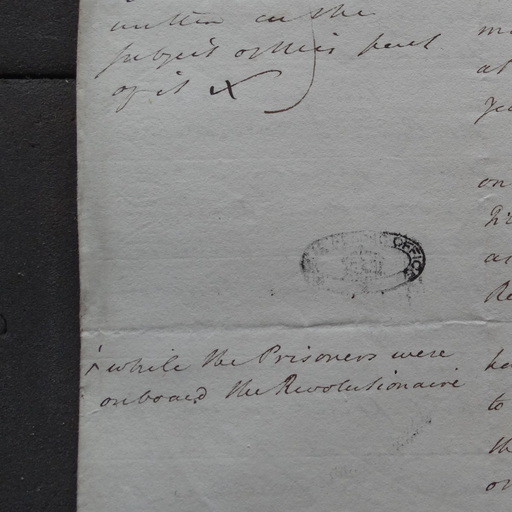 written on the
subject of this part
of it X
OFFICE
while the Prisoners were
onboard the Revolutionaire
on
as
Re
ha
to
the
on